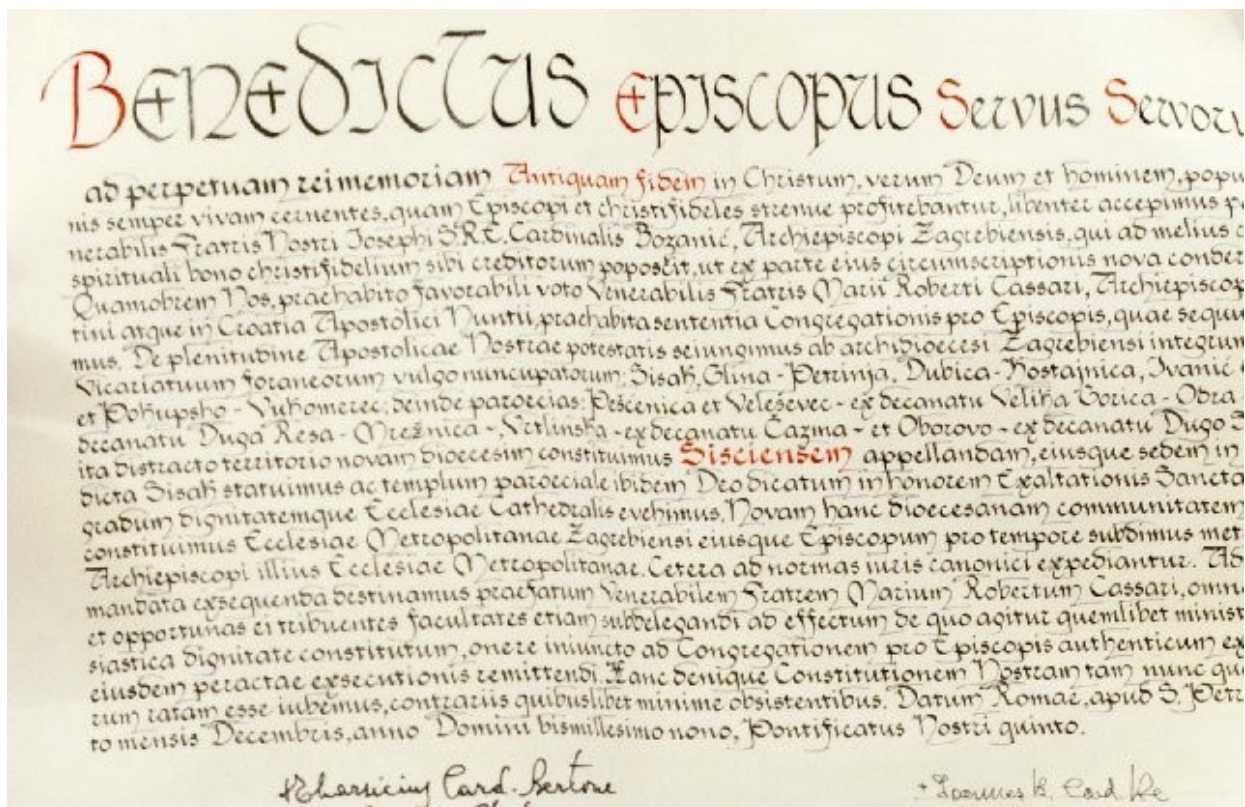 BENEDICTUS EPISCOPUS Servus Servoru
ad perpetuam rei memoriam Antiquam fidem in Christum, verum Deum et hominem, popu
nis semper vivam cernentes, quam Episcopi et christifideles strenue profitebantur, libenter accepimus pe
nerabilis Fratris Nostri Josephi S.R.E. Cardinalis Bozanić, Archiepiscopi Zagrebiensis, qui ad melius c
spirituali bono christifidelium sibi creditorum poposcit, ut ex parte eius circumscriptionis nova conder
Quamobrem Nos, praehabito favorabili voto Venerabilis Fratris Marii Roberti Cassari, Archiepiscop
tini atque in Croatia Apostolici Nuntii, praehabita sententia Congregationis pro Episcopis, quae sequu
mus. De plenitudine Apostolicae Nostrae potestatis seiungimus ab archidioecesi Zagrebiensi integrum
Vicariatuum foraneorum vulgo nuncupatorum: Sisak, Glina - Petrinja, Dubica - Kostajnica, Ivanić
et Pokupsko - Vukomerec; deinde paroecias: Pešćenica et Veleševec - ex decanatu Velika Gorica - Odra -
decanatu Duga Resa - Mrežnica -, Vrtlinska - ex decanatu Čazma - et Oborovo - ex decanatu Dugo S
ita distracto territorio novam dioecesim constituimus Sisciensem appellandam, eiusque sedem in
dicta Sisak statuimus ac templum paroeciale ibidem Deo dicatum in honorem Exaltationis Sancta
gradum dignitatemque Ecclesiae Cathedralis evehimus. Novam hanc dioecesanam communitatem
constituimus Ecclesiae Metropolitanae Zagrebiensi eiusque Episcopum pro tempore subdimus met
Archiepiscopi illius Ecclesiae Metropolitanae. Cetera ad normas iuris canonici expediantur. Ad
mandata exsequenda destinamus praefatum Venerabilem Fratrem Marium Robertum Cassari, omne
et opportunas ei tribuentes facultates etiam subdelegandi ad effectum de quo agitur quemlibet minist
siastica dignitate constitutum, onere iniuncto ad Congregationem pro Episcopis authenticum ex
eiusdem peractae exsecutionis remittendi. Hanc denique Constitutionem Nostram tam nunc qua
rum ratam esse iubemus, contrariis quibuslibet minime obsistentibus. Datum Romae, apud S. Petr
to mensis Decembris, anno Domini bismillesimo nono, Pontificatus Nostri quinto.
Tharsicius Card. Bertone
+ Ioannes B. Card. Re